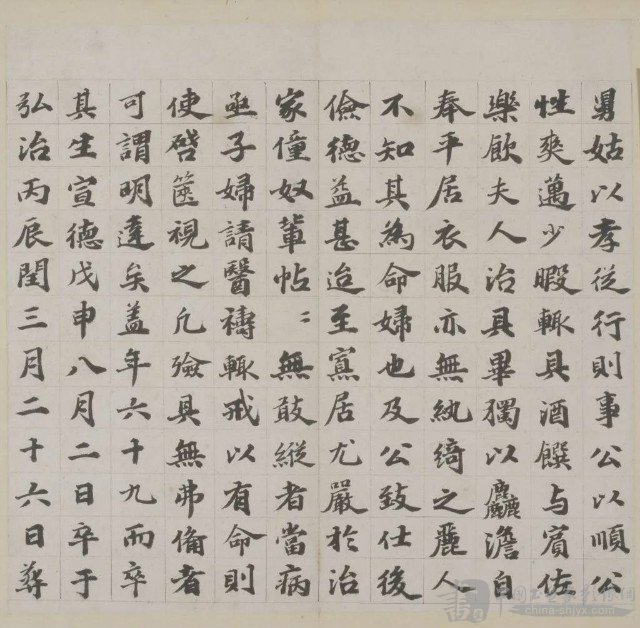 舅姑以孝從行則事公以順公
性爽邁少暇輒具酒饌与賓佐
樂飲夫人治具畢獨以麤澹自
奉平居衣服亦無紈綺之麗人
不知其為命婦也及公致仕後
儉德益甚迨至寡居尤嚴於治
家僮奴輩帖〻無敢縱者當病
亟子婦請醫禱輒戒以有命則
使啓篋視之凡殮具無弗俻者
可謂明達矣盖年六十九而卒
其生宣德戊申八月二日卒于
弘治丙辰閏三月二十六日葬
china-shjyx.com